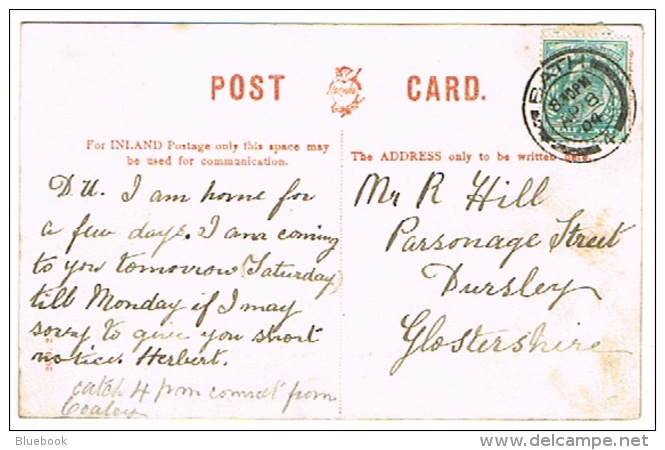 POST CARD.
For INLAND Postage only this space may
be used for communication.
The ADDRESS only to be written here.
D.U. I am home for
a few days. I am coming
to you tomorrow (Saturday)
till Monday if I may
sorry to give you short
notice. Herbert.
catch 4 pm from
Coaley
Mr R Hill
Parsonage Street
Dursley
Glostershire
BATH
8.40PM
AP 8
04
Bluebook
delcampe.net